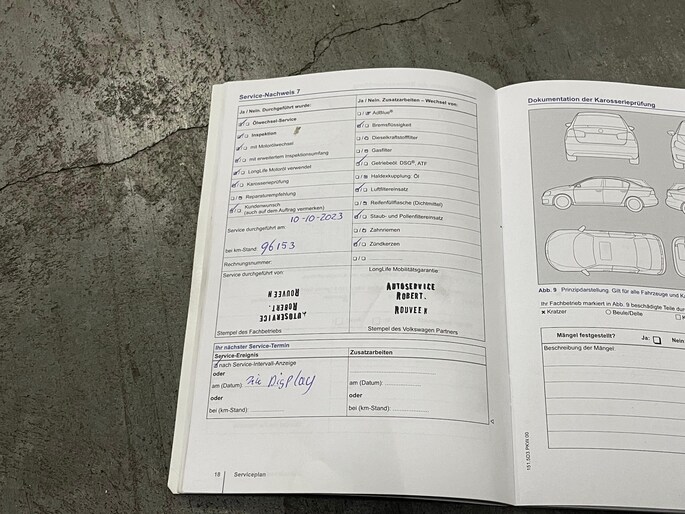 Service-Nachweis 7
Ja / Nein. Durchgeführt wurde:
Ölwechsel-Service
Inspektion
mit Motorölwechsel
mit erweitertem Inspektionsumfang
LongLife Motoröl verwendet
Karosserieprüfung
Reparaturempfehlung
Kundenwunsch
(auch auf dem Auftrag vermerken)
10-10-2023
Service durchgeführt am:
bei km-Stand: 96153
Rechnungsnummer:
Service durchgeführt von:
AUTOSERVICE
ROBERT.
ROUVEEN
Stempel des Fachbetriebs
Ja / Nein. Zusatzarbeiten – Wechsel von:
AdBlue®
Bremsflüssigkeit
Dieselkraftstofffilter
Gasfilter
Getriebeöl: DSG®, ATF
Haldexkupplung: Öl
Luftfiltereinsatz
Reifenfüllflasche (Dichtmittel)
Staub- und Pollenfiltereinsatz
Zahnriemen
Zündkerzen
LongLife Mobilitätsgarantie
AUTOSERVICE
ROBERT.
ROUVEEN
Stempel des Volkswagen Partners
Ihr nächster Service-Termin
Service-Ereignis
nach Service-Intervall-Anzeige
oder
am (Datum): zie Display
oder
bei (km-Stand):
Zusatzarbeiten
am (Datum):
oder
bei (km-Stand):
18 Serviceplan
Dokumentation der Karosserieprüfung
Abb. 9 Prinzipdarstellung. Gilt für alle Fahrzeuge und
Ihr Fachbetrieb markiert in Abb. 9 beschädigte Teile
x Kratzer
Beule/Delle
Mängel festgestellt? Ja: Nein
Beschreibung der Mängel:
151.5D3.PKW.00